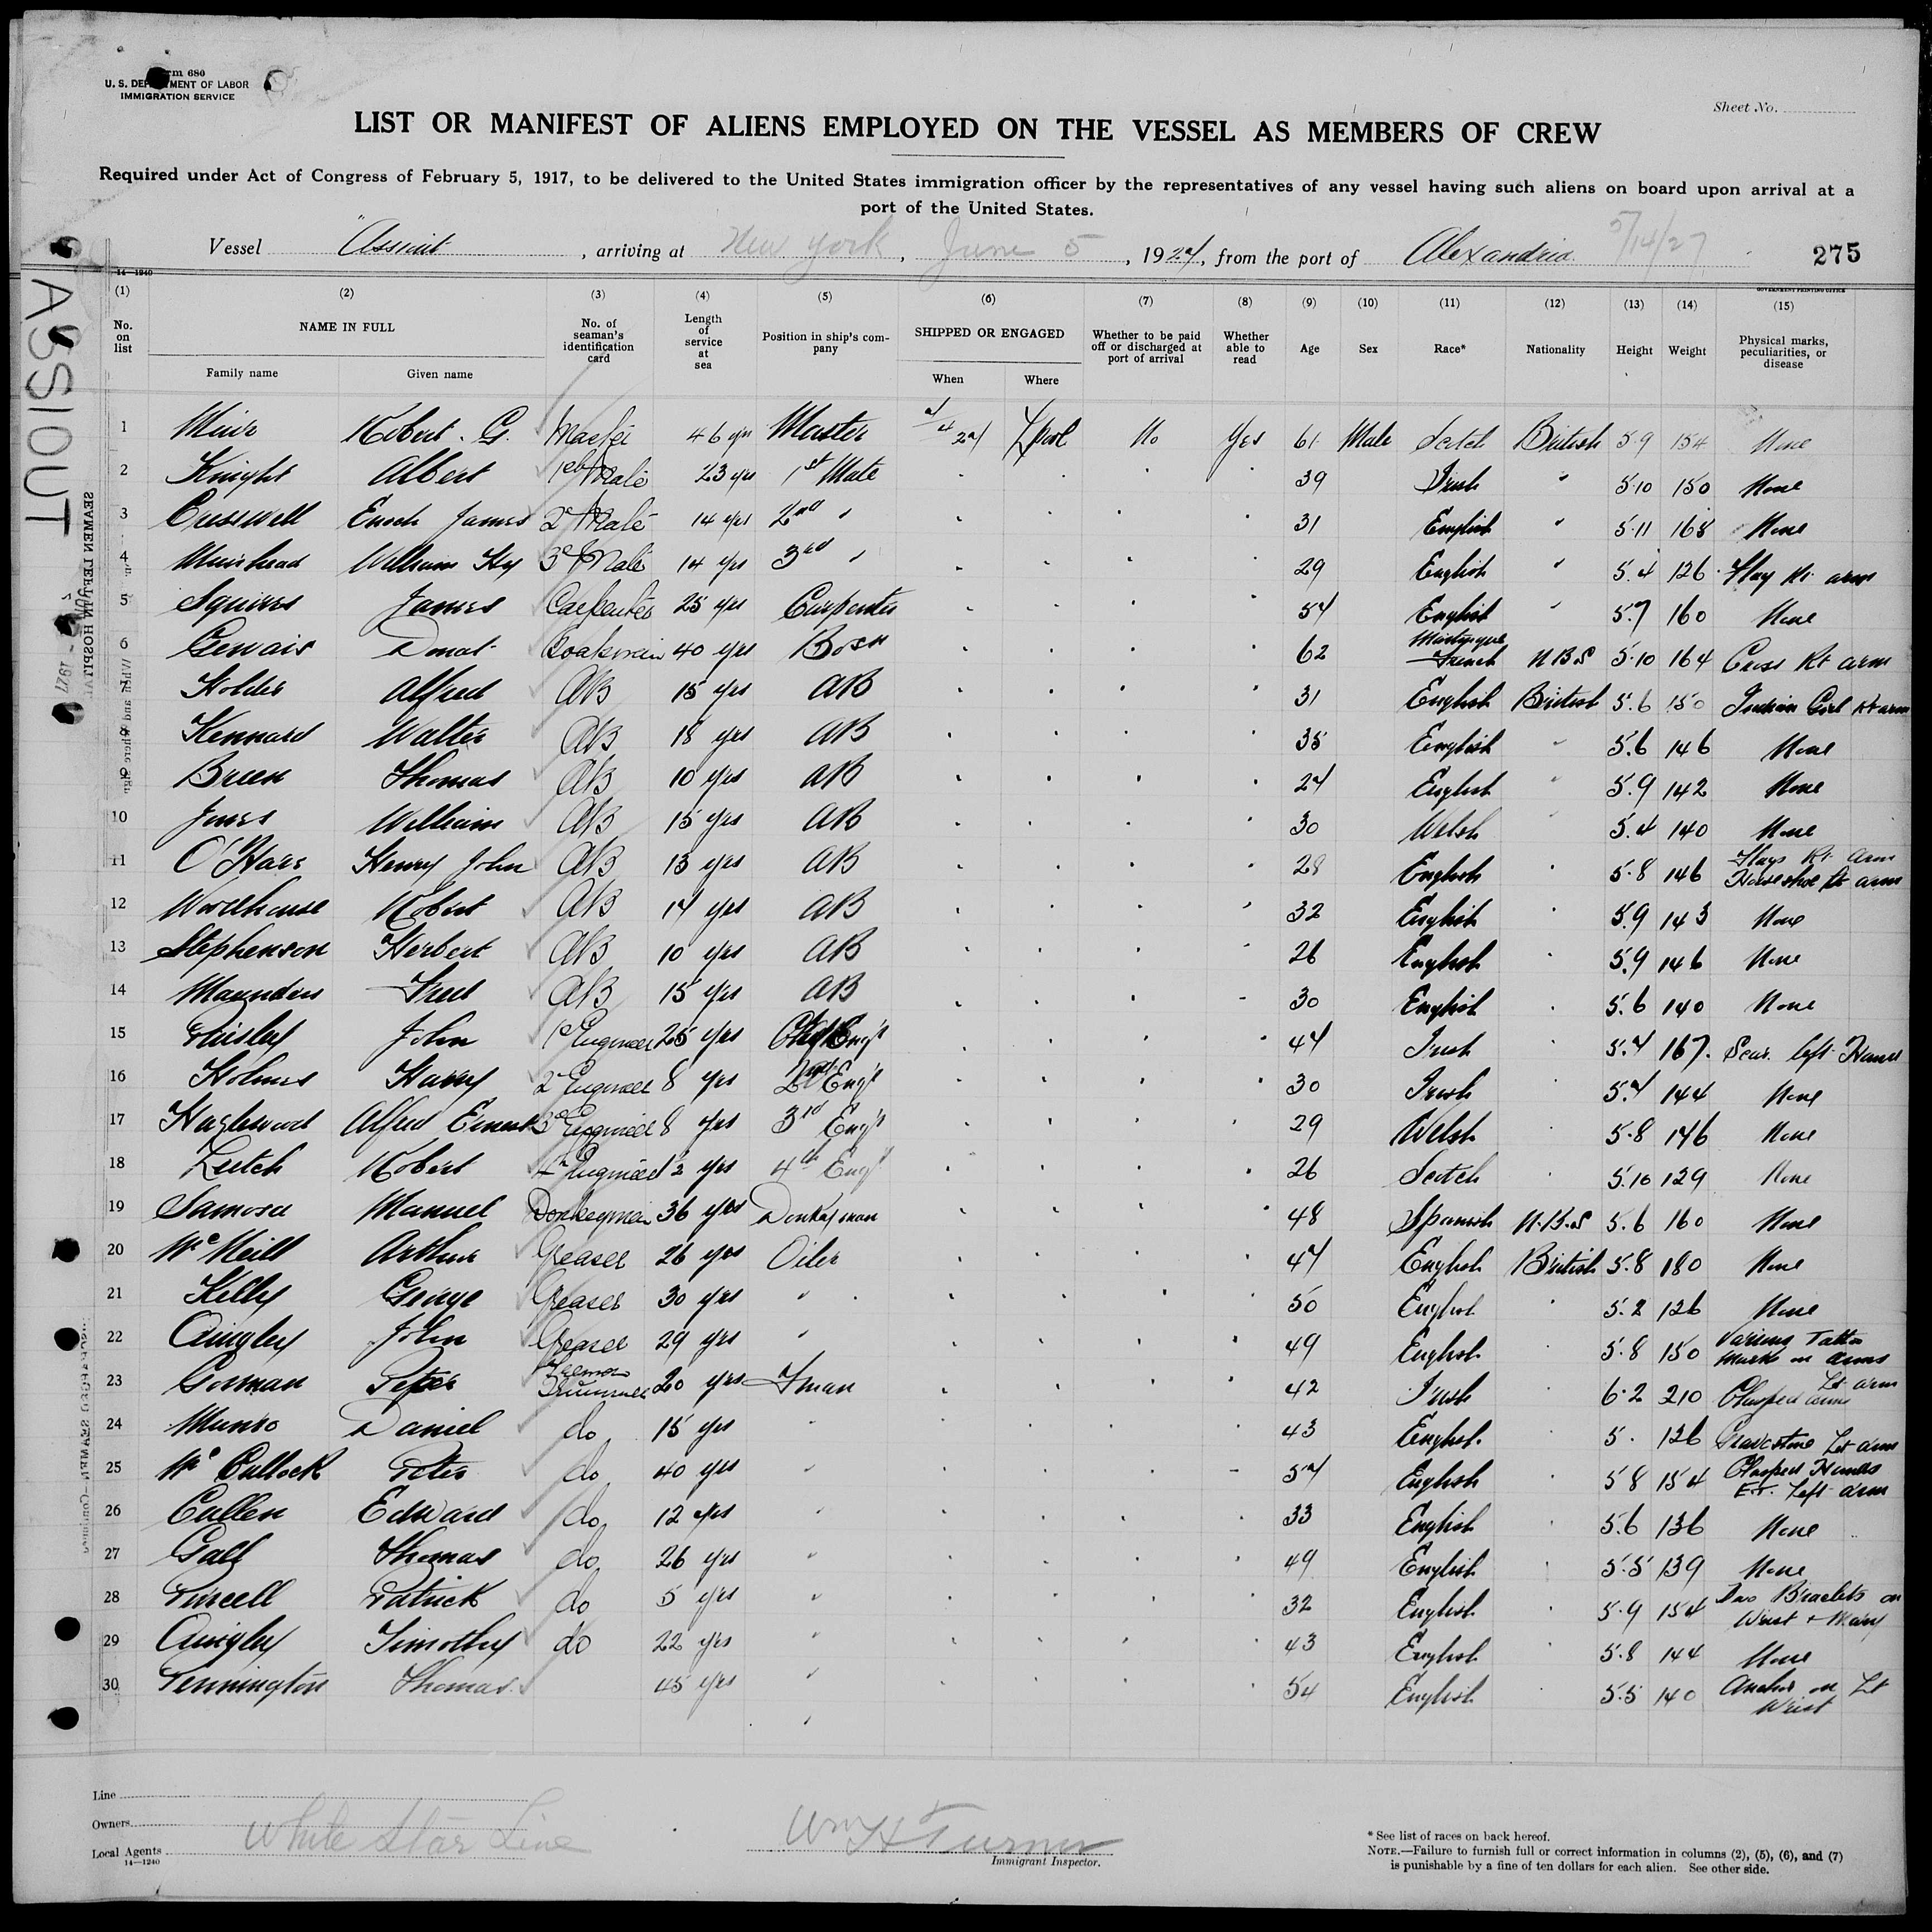 Form 680
U. S. DEPARTMENT OF LABOR
IMMIGRATION SERVICE
Sheet No.
LIST OR MANIFEST OF ALIENS EMPLOYED ON THE VESSEL AS MEMBERS OF CREW
Required under Act of Congress of February 5, 1917, to be delivered to the United States immigration officer by the representatives of any vessel having such aliens on board upon arrival at a
port of the United States.
Vessel Assiout, arriving at New York, June 5, 1924, from the port of Alexandria 5/14/27 275
14—1240
GOVERNMENT PRINTING OFFICE
ASSIOUT
SEAMEN LEFT IN HOSPITAL
(1) (2) (3) (4) (5) (6) (7) (8) (9) (10) (11) (12) (13) (14) (15)
No. on list NAME IN FULL Family name Given name No. of seaman's identification card Length of service at sea Position in ship's company SHIPPED OR ENGAGED When Where Whether to be paid off or discharged at port of arrival Whether able to read Age Sex Race* Nationality Height Weight Physical marks, peculiarities, or disease
1 Muir Robert. G. Master 46 yrs Master 4 24 Lpool No Yes 61 Male Scotch British 5.9 154 None
2 Knight Albert 1st Mate 23 yrs 1st Mate 39 Irish " 5.10 150 None
3 Cresswell Enoch James 2nd Mate 14 yrs 2nd " 31 English " 5.11 168 None
4 Muirhead William Hy 3rd Mate 14 yrs 3rd " 29 English " 5.4 126 Flag Rt. arm
5 Squires James Carpenter 25 yrs Carpenter 54 English " 5.7 160 None
6 Gervais Donat Boatswain 40 yrs Bosn 62 Martinique French N B S 5.10 164 Cross Rt arm
7 Holder Alfred AB 15 yrs AB 31 English British 5.6 150 Indian Girl Rt arm
8 Kennard Walter AB 18 yrs AB 35 English " 5.6 146 None
9 Brien Thomas AB 10 yrs AB 24 English " 5.9 142 None
10 Jones William AB 15 yrs AB 30 Welsh " 5.4 140 None
11 O'Hare Henry John AB 13 yrs AB 28 English 5.8 146 Flags Rt. arm Horseshoe Rt arm
12 Woodhouse Robert AB 14 yrs AB 32 English 5.9 143 None
13 Stephenson Herbert AB 10 yrs AB 26 English 5.9 146 None
14 Maunders Fred AB 15 yrs AB 30 English 5.6 140 None
15 Paisley John 1st Engineer 25 yrs Chief Eng'r 44 Irish 5.4 167. Scar. left Hand
16 Holmes Harry 2nd Engineer 8 yrs 2nd Eng'r 30 Irish 5.4 144 None
17 Hazlewood Alfred Ernest 3rd Engineer 8 yrs 3rd Eng'r 29 Welsh 5.8 146 None
18 Leitch Robert 4th Engineer 2 yrs 4th Eng'r 26 Scotch 5.10 129 None
19 Samosa Manuel Donkeyman 36 yrs Donkeyman 48 Spanish N.B.S 5.6 160 None
20 McNeill Arthur Greaser 26 yrs Oiler 47 English British 5.8 180 None
21 Kelly George Greaser 30 yrs " 50 English 5.2 126 None
22 Quigley John Greaser 29 yrs " 49 English 5.8 150 Various Tattoo Marks on arms
23 Gorman Peter Fireman Trimmer 20 yrs Fman 42 Irish 6.2 210 Clasped Lt arm
24 Munro Daniel do 15 yrs 43 English. 5. 126 Gravestone Lt arm
25 McCullock Peter do 40 yrs " 54 English 5 8 154 Clasped Hands E.T. left arm
26 Cullen Edward do 12 yrs " 33 English 5.6 136 None
27 Gall Thomas do 26 yrs " 49 English 5.5 139 None
28 Purcell Patrick do 5 yrs " 32 English 5.9 154 Two Bracelets on Wrist + Mary
29 Quigley Timothy do 22 yrs " 43 English 5.8 144 None
30 Pennington Thomas 45 yrs " 54 English 5.5 140 Anchor on Lt Wrist
Line
Owners
Local Agents White Star Line
14—1240
Wm H Turner
Immigrant Inspector.
* See list of races on back hereof.
NOTE.—Failure to furnish full or correct information in columns (2), (5), (6), and (7)
is punishable by a fine of ten dollars for each alien. See other side.